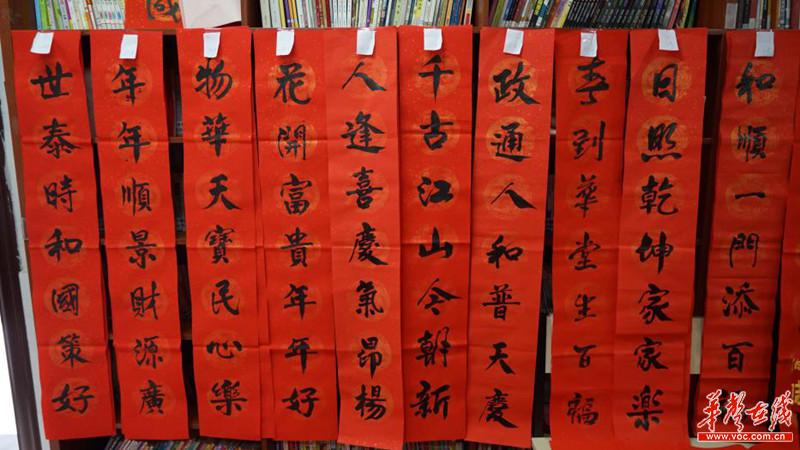 和順一門添百
日照乾坤家家樂
春到華堂生百福
政通人和普天慶
千古江山今朝新
人逢喜慶氣昂楊
花開富貴年年好
物華天寶民心樂
年年順景財源廣
世泰時和國策好
华声在线
www.voc.com.cn